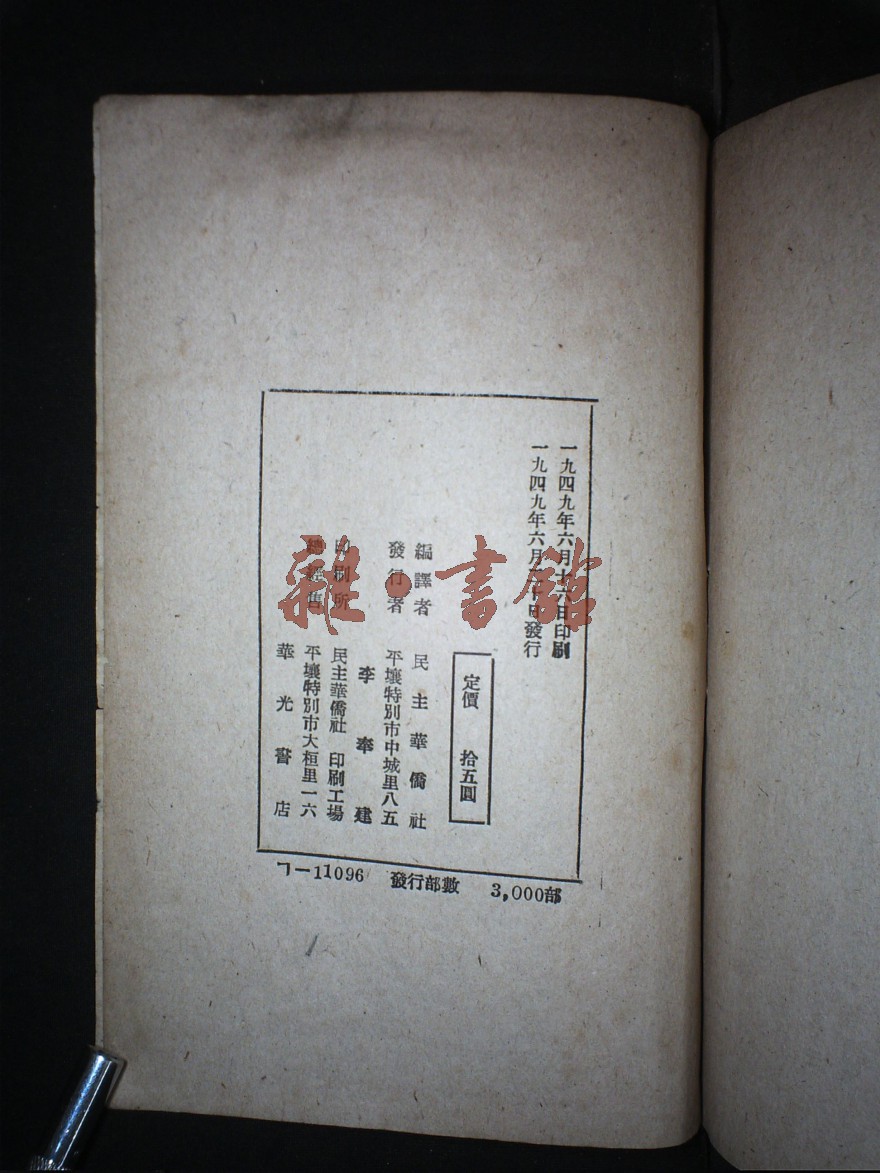 一九四九年六月十六日印刷
一九四九年六月二十日發行
定價 拾五圓
編譯者 民主華僑社
發行者 平壤特別市中城里八五
李奉建
印刷所 民主華僑社 印刷工場
總經售 平壤特別市大桓里一六
華光書店
ㄱ—11096 發行部數 3,000部
雜·書館